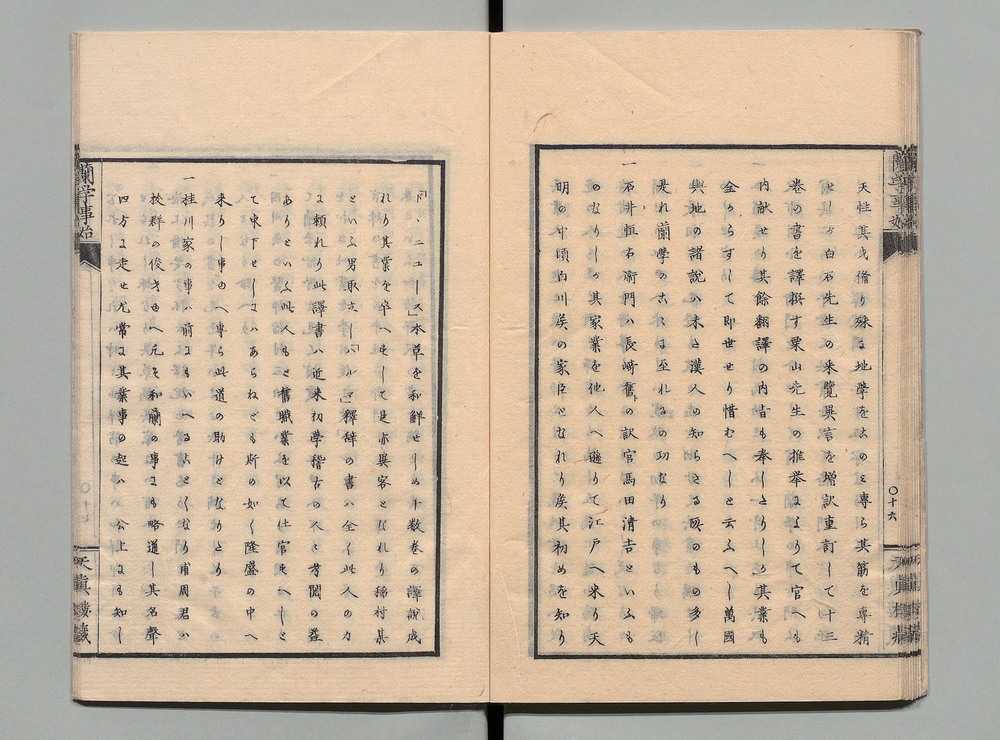 天性其才僻り殊に地學を好のミ專ら其筋を專精
せしが白石先生の采覽異言を增訳重訂して十三
卷の書を譯撰す栗山先生の推挙によりて官へも
内献せり其餘翻譯の内旨も奉しとりしり其業も
全からすして即世せり惜むへしと云ふへし萬國
輿地の諸說ハ未と漢人の知らさる所のもの多し
是れ蘭學の古に至れるの功なり
一石井恒右衛門ハ長﨑舊の訳官馬田清吉といふも
のなりしが其家業を他人へ遜りて江戸へ来り天
明の中頃白川矦の家臣となれり矦其初めを知り
蘭学事始
〇十六
「ド、ニユース」本草を和解せしめ十数卷の譯說成
れり其業を卒へすして是亦異客となれり稲村某
といふ男取立し「ハルマ」釋辞の書ハ全く此人の力
に頼れり此譯書ハ近来初學稽古の人と考閲の益
ありといふ此人もと舊職業を以て仕官すへしと
て東下せしにハあらねども斯の如く隆盛の中へ
来りし事ゆへ專ら此道の助けとなりとり
一桂川家の事ハ前にもいへるごとくなり甫周君ハ
校群の俊才ゆへ凡そ和蘭の事にも略道し其名聲
四方に走せ尤常に其業事の起ハ 公上にも知し
蘭学事始
天真樓